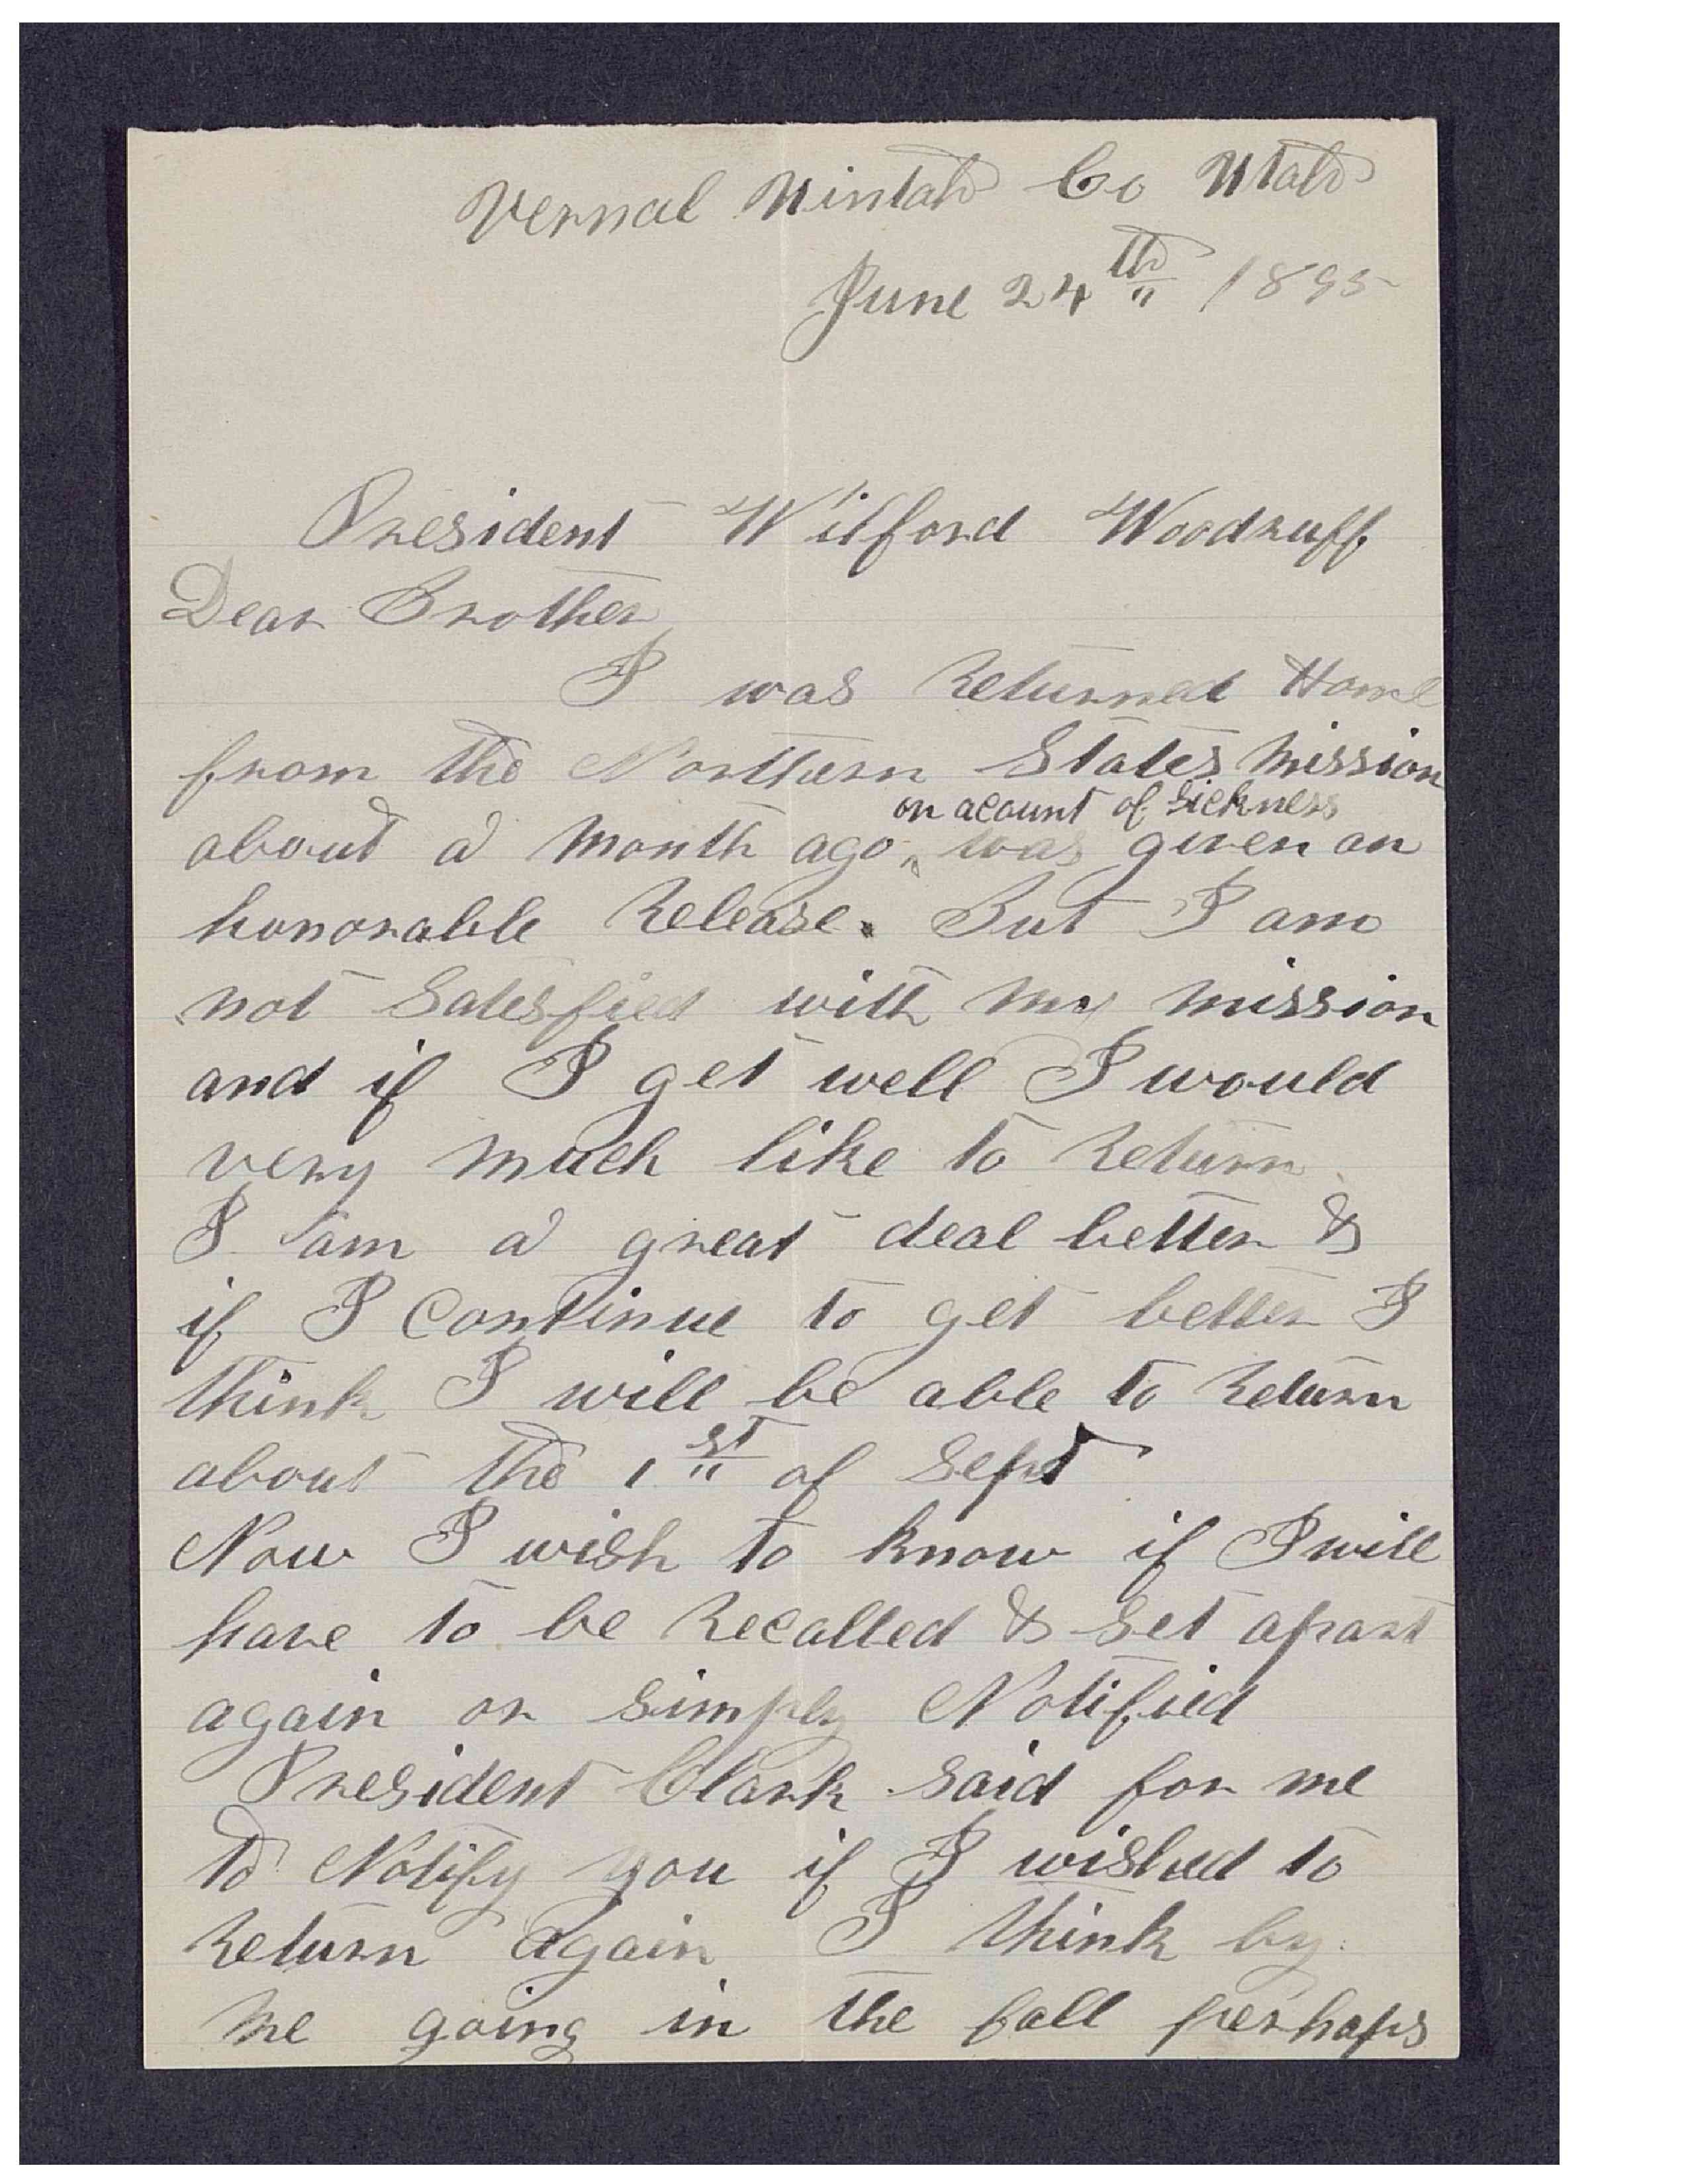 Vernal Uintah Co Utah
June 24th 1895
President Wilford Woodruff
Dear Brother
I was Returned Home
from the Northern States Mission
on acount of Sickness
about a Month ago ‸ was given an
honorable Release. But I am
not Satesfied with my mission
and if I get well I would
very much like to Return
I am a great deal better &
if I Continue to get better I
think I will be able to Return
about the 1st of Sept
Now I wish to know if I will
have to be Recalled & Set apart
again or Simply Notified
President Clark Said for me
to Notify you if I wished to
Return again I think by
me going in the fall perhaps